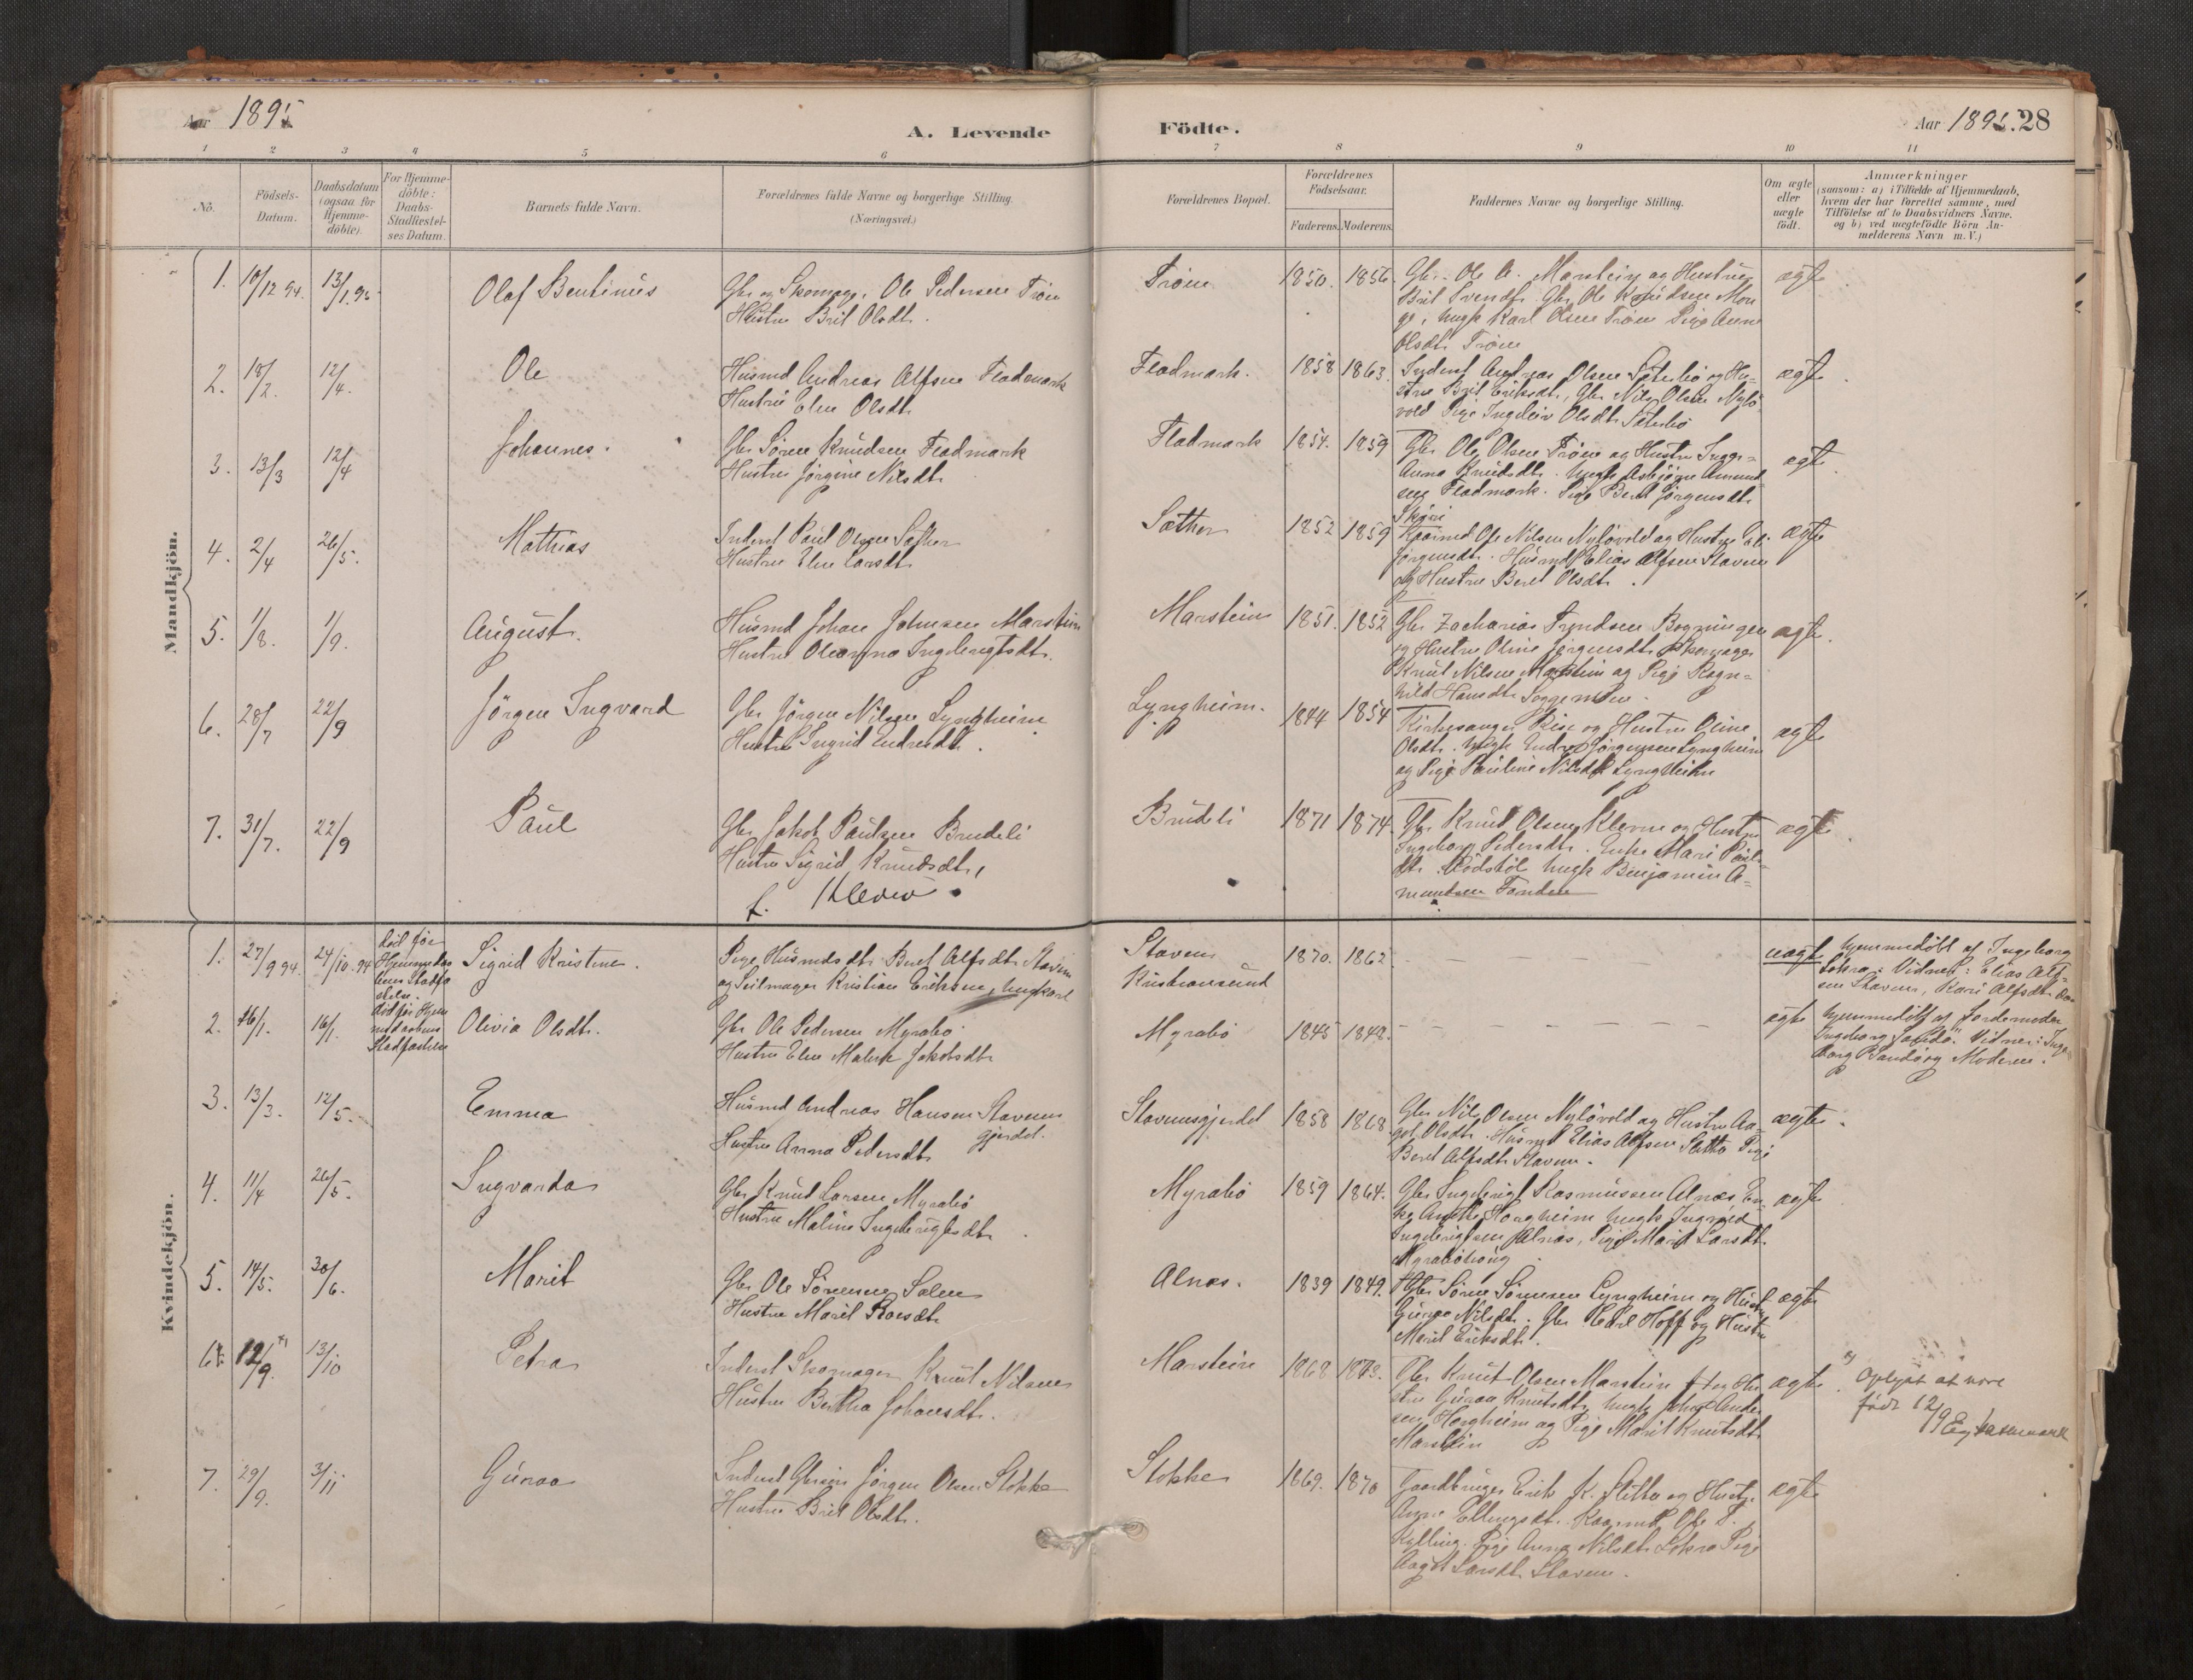 Aar 1895
A. Levende
Födte.
Aar 1895. 28
1 2 3 4 5 6 7 8 9 10 11
Nò.
Födsels-
Datum.
Daabsdatum
(ogsaa for
Hjemme-
döbte).
For Hjemme-
döbte:
Daabs-
Stadfæstel-
ses Datum.
Barnets fulde Navn.
Forældrenes fulde Navne og borgerlige Stilling.
(Næringsvei.)
Forældrenes Bopæl.
Forældrenes
Födselsaar.
Faderens. Moderens.
Faddernes Navne og borgerlige Stilling.
Om ægte
eller
uægte
födt.
Anmærkninger
(saasom: a) i Tilfælde af Hjemmedaab,
hvem der har forrettet samme, med
Tilföielse af to Daabsvidners Navne.
og b) ved uægtefödte Börn An-
melderens Navn m. V.)
Mandkjön.
1. 10/12 94. 13/1 95 Olaf Bentinus
Gbr og Skomager Ole Pedersen Trøen
Hustru Brit Olsdt.
Trøen 1850. 1856.
Gbr. Ole A. Marstein og Hustru
Brit Svendsd. Gbr Ole Knudsen Mon
ge, Ungk Karl Olsen Trøen Pige Anne
Olsdt. Trøen
ægte
2. 18/2. 12/4. Ole
Husmd Andreas Alfsen Fladmark
Hustru Elen Olsdt.
Fladmark. 1858 1863.
Inderst Andreas Olsen Sæterbø og Hu-
stru Brit Eriksdt., Gbr Nils Olsen Nylø
vold Pige Ingeleiv Olsdt. Sæterbø
ægte
3. 13/3 12/4 Johannes.
Gbr Søren Knudsen Fladmark
Hustru Jørgine Nilsdt.
Fladmark 1854. 1859
Gbr Ole Olsen Trøen og Hustru Inge-
Anna Knudsdt. Ungk Asbjørn Amund
sen Fladmark. Pige Beret Jørgensdt.
Skjøri
ægte
4. 2/4 26/5. Mathias
Inderst Paul Olsen Sæther
Hustru Elen Larsdt.
Sæther 1852 1859
Kaarmd Ole Nilsen Nyløvold og Hustru Eli
Jørgensdt. Husmd Elias Alfsen Staven
og Hustru Beret Olsdt.
ægte
5. 1/8. 1/9. August.
Husmd Johan Johnsen Marstein
Hustru Oleanna Ingebrigtsdt.
Marstein 1851. 1852
Gbr Zacharias Tryndsen Bogningen
og Hustru Oline Jørgensdt. Skomager
Knut Nilsen Marstein og Pige Ragn-
hild Hansdt. Soggemoen.
ægte.
6. 28/7 22/9 Jørgen Ingvard
Gbr Jørgen Nilsen Lyngheim
Hustru Ingrid Endresdt.
Lyngheim. 1844 1854
Kirkesanger Rise og Hustru Oline
Olsdt. Ungk Endre Jørgensen Lyngheim
og Pige Pauline Nilsdt Lyngheim
ægte
7. 31/7. 22/9 Paul
Gbr Jakob Paulsen Brudeli
Hustru Sigrid Knudsdt,
f. Kleven
Brudeli 1871 1874.
Gbr Knud Olsen Kleven og Hustru
Ingeborg Pedersdt. Enke Mari Pauls-
dt. Rødstøl Ungk Benjamin A-
mundsen
ægte.
Kvindekjön.
1. 27/9 94. 24/10. 94 Sigrid Kristine.
Pige Husmdsdt. Beret Alfsdt. Staven
og Seilmager Kristian Eriksen, Ungkarl
Staven
Kristiansund
1870. 1862
uægte
hjemmedøbt af Ingeborg
Sokra: Vidner: Elias Alf-
sen Staven, Kari Alfsdt.
2. 16/1. 16/1. Olivia Olsdt.
Gbr Ole Pedersen Myrabø
Hustru Elen Malene Jakobsdt.
Myrabø 1845 1848.
ægte
hjemmedøbt af Jordemoder
Ingeborg. Vidner: Inge
borg og Moderen.
3. 13/3. 12/5. Emma
Husmd Andreas Hansen Stavens
gjerdet.
Hustru Anna Pedersdt.
Stavensgjerdet 1858 1868
Gbr Nils Olsen Nyløvold og Hustru Aa-
got Olsdt. Husmd Elias Alfsen Slettta Pige
Beret Alfsdt Staven.
ægte.
4. 11/4 26/5. Ingvarda
Gbr Knud Larsen Myrabø
Hustru Maline Ingebrigtsdt.
Myrabø 1859 1864.
Gbr Ingebrigt Rasmussen Alnæs En-
ke Anethe Horgheim Ungk Ingvard
Ingebrigtsen Alnæs, Pige Marit Larsdt.
Myrabøhaug
ægte
5. 14/5. 30/6. Marit
Gbr Ole Sørensen Salen
Hustru Marit Larsdt.
Alnæs. 1839 1849.
Gbr Søren Sørensen Lyngheim og Hustru
Guroe Nilsdt. Gbr Peder Hoff og Hustru
Marit Eriksdt.
ægte
6. 12/9. 13/10 Petra
Inderst Skomager Knut Nilsen
Hustru Bertha Johansdt.
Marstein 1868 1873.
Gbr Knut Olsen Marstein Hu
stru Guroa Knutsdt. Ungk Johan Ander
sen Horgheim og Pige Marit Knutsdt.
Marstein
ægte
Oplyst at være
født 12/9
7. 29/9. 3/11 Guroa
Inderst Gbrsøn Jørgen Olsen Stokke
Hustru Brit Olsdt.
Stokke 1869. 1870
Gaardbruger Erik K. Sletta og Hustru
Anne Ellingsdt. Kaarmd Ole T.
Kylling. Pige Anna Nilsdt. Sokra Pige
Aagot Larsdt. Staven.
ægte